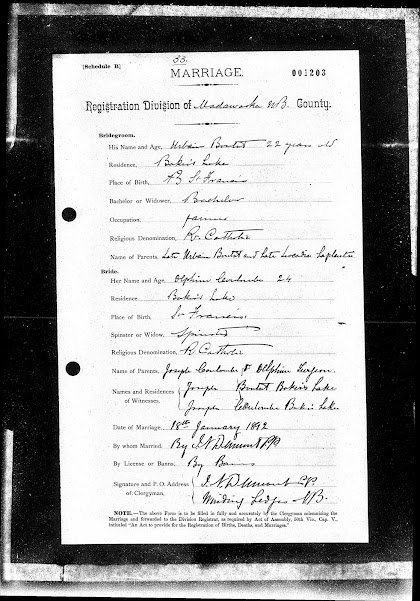 33.
[Schedule B]
MARRIAGE.
001203
Registration Division of Madawaska NB. County.
Bridegroom.
His Name and Age, Urbain Boutot 22 years old
Residence, Baker's Lake
Place of Birth, St Francis
Bachelor or Widower, Bachelor
Occupation, farmer
Religious Denomination, R. Catholic
Name of Parents, Late Urbain Boutot and Late Laplante
Bride.
Her Name and Age, Coulombe 24
Residence Baker's Lake
Place of Birth, St Francis
Spinster or Widow, Spinster
Religious Denomination, R Catholic
Name of Parents, Joseph Coulombe & Delphine Turgeon.
Names and Residences of Witnesses. Joseph Boutot Baker's Lake
Joseph Coulombe Baker's Lake
Date of Marriage, 18th January 1892
By whom Married, By
By License or Banns, By Banns
Signature and P. O. Address of Clergyman,
NB.
NOTE.—The above Form is to be filled in fully and accurately by the Clergyman solemnizing the
Marriage and forwarded to the Division Registrar, as required by Act of Assembly, 50th Vic., Cap. V.,
intituled "An Act to provide for the Registration of Births, Deaths, and Marriages."